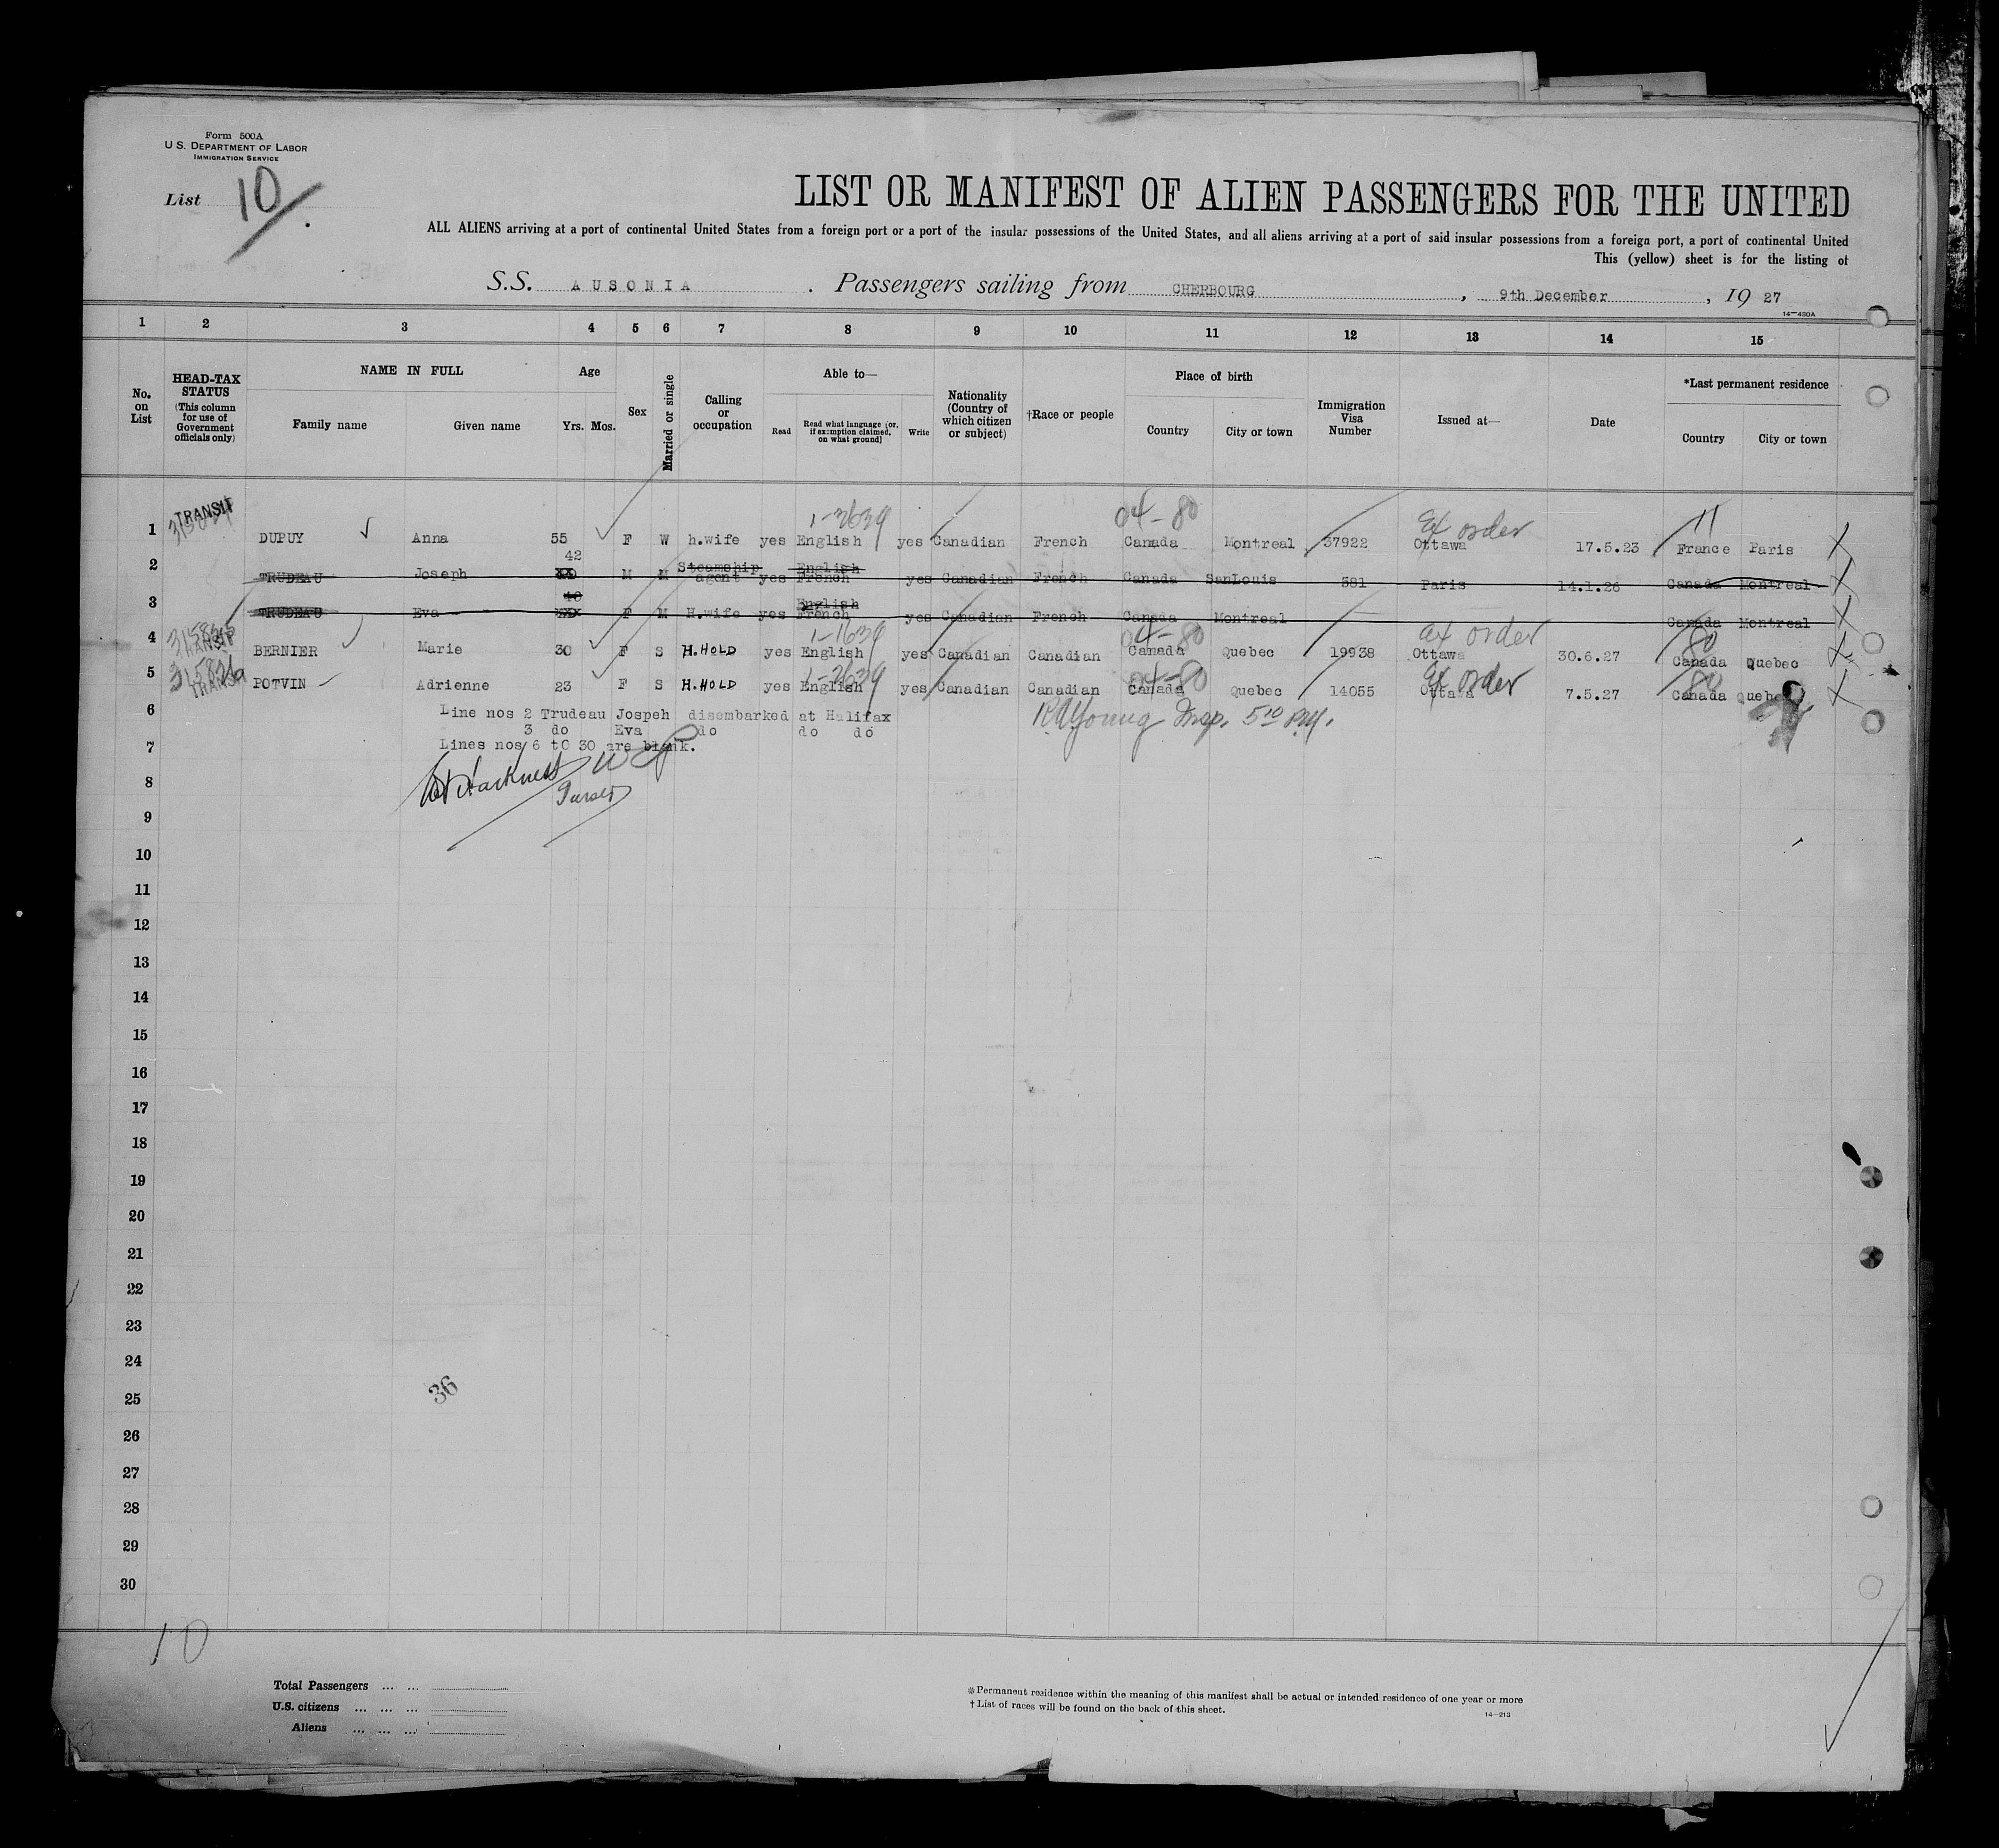 Form 500A
U.S. DEPARTMENT OF LABOR
IMMIGRATION SERVICE
List 10
LIST OR MANIFEST OF ALIEN PASSENGERS FOR THE UNITED
ALL ALIENS arriving at a port of continental United States from a foreign port or a port of the insular possessions of the United States, and all aliens arriving at a port of said insular possessions from a foreign port, a port of continental United
This (yellow) sheet is for the listing of
S.S. AUSONIA . Passengers sailing from CHERBOURG , 9th December , 19 27
14—430A
1 2 3 4 5 6 7 8 9 10 11 12 13 14 15
No. on List
HEAD-TAX STATUS (This column for use of Government officials only)
NAME IN FULL
Family name Given name
Age
Yrs. Mos.
Sex
Married or single
Calling or occupation
Able to—
Read Read what language (or, if exemption claimed, on what ground) Write
Nationality (Country of which citizen or subject)
†Race or people
Place of birth
Country City or town
Immigration Visa Number
Issued at—
Date
*Last permanent residence
Country City or town
TRANSIT 1-2639 04-80 Ex order 11
1 DUPUY Anna 55 F W h.wife yes English yes Canadian French Canada Montreal 37922 Ottawa 17.5.23 France Paris
42 Steamship English
2 TRUDEAU Joseph M M agent yes French yes Canadian French Canada SanLouis 581 Paris 14.1.26 Canada Montreal
40 English
3 TRUDEAU Eva XXX F M H.wife yes French yes Canadian French Canada Montreal Canada Montreal
TRANSIT 1-1639 04-80 ex order 80
4 BERNIER Marie 30 F S H.HOLD yes English yes Canadian Canadian Canada Quebec 19938 Ottawa 30.6.27 Canada Quebec
TRANSIT 1-2639 04-80 Ex order 80
5 POTVIN Adrienne 23 F S H.HOLD yes English yes Canadian Canadian Canada Quebec 14055 Ottawa 7.5.27 Canada Quebec
6 Line nos 2 Trudeau Jospeh disembarked at Halifax
R A Young Insp. 510 P.M.
3 do Eva do do do
7 Lines nos 6 t0 30 are blank.
8 Harkness
Purser
9
10
11
12
13
14
15
16
17
18
19
20
21
22
23
24
25
36
26
27
28
29
30
10
Total Passengers ... ...
U.S. citizens ... ... ...
Aliens ... ... ...
*Permanent residence within the meaning of this manifest shall be actual or intended residence of one year or more
†List of races will be found on the back of this sheet.
14—213